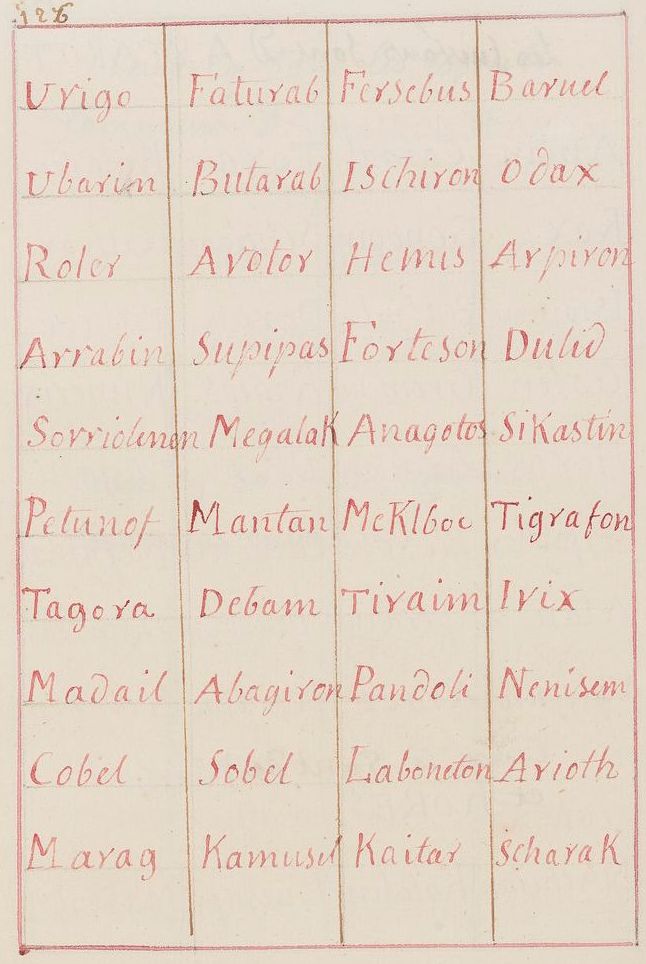 126
Urigo Faturab Fersebus Baruel
Ubarin Butarab Ischiron Odax
Roler Arotor Hemis Arpiron
Arrabin Supipas Forteson Dulid
Sorriolenen Megalak Anagotos Sikastin
Petunof Mantan Meklboc Tigrafon
Tagora Debam Tiraim Irix
Madail Abagiron Pandoli Nenisem
Cobel Sobel Laboneton Arioth
Marag Kamusil Kaitar scharak